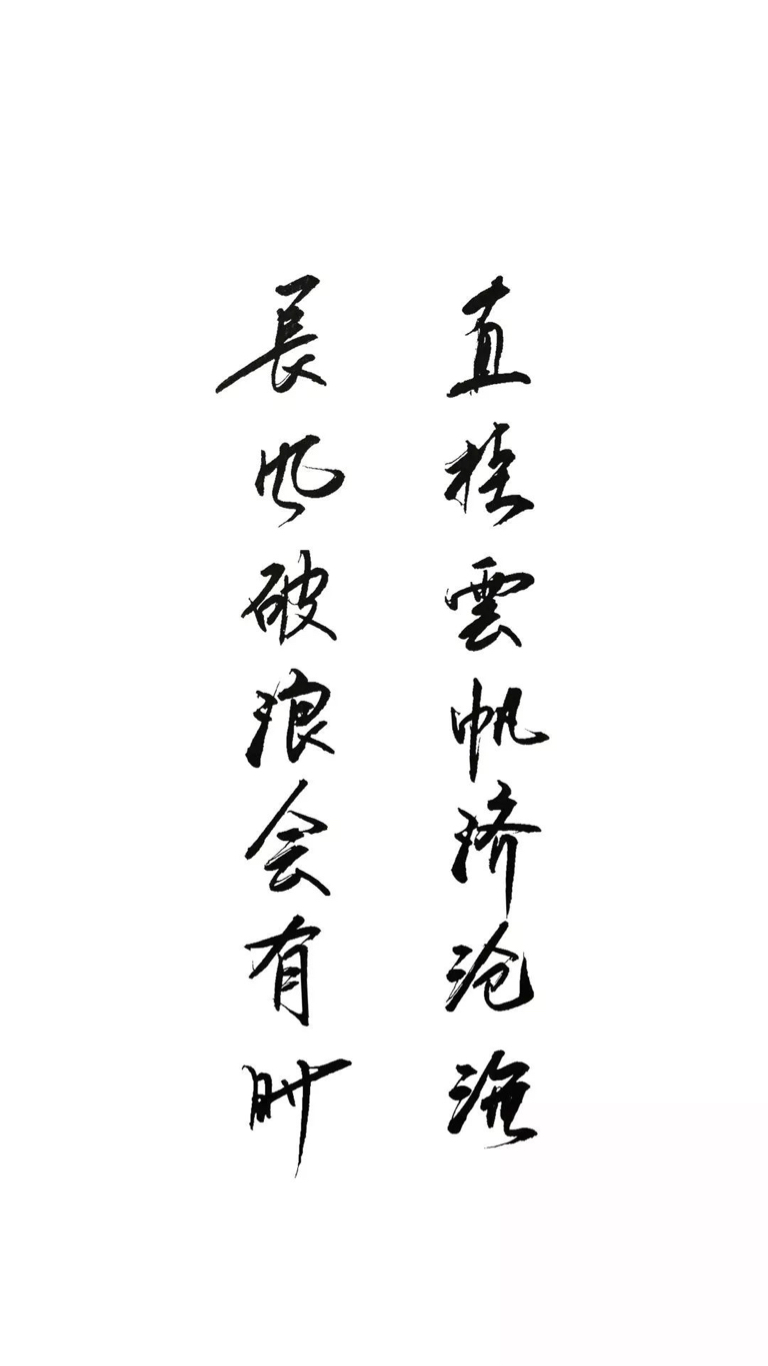 長风破浪会有时
直挂雲帆济沧海